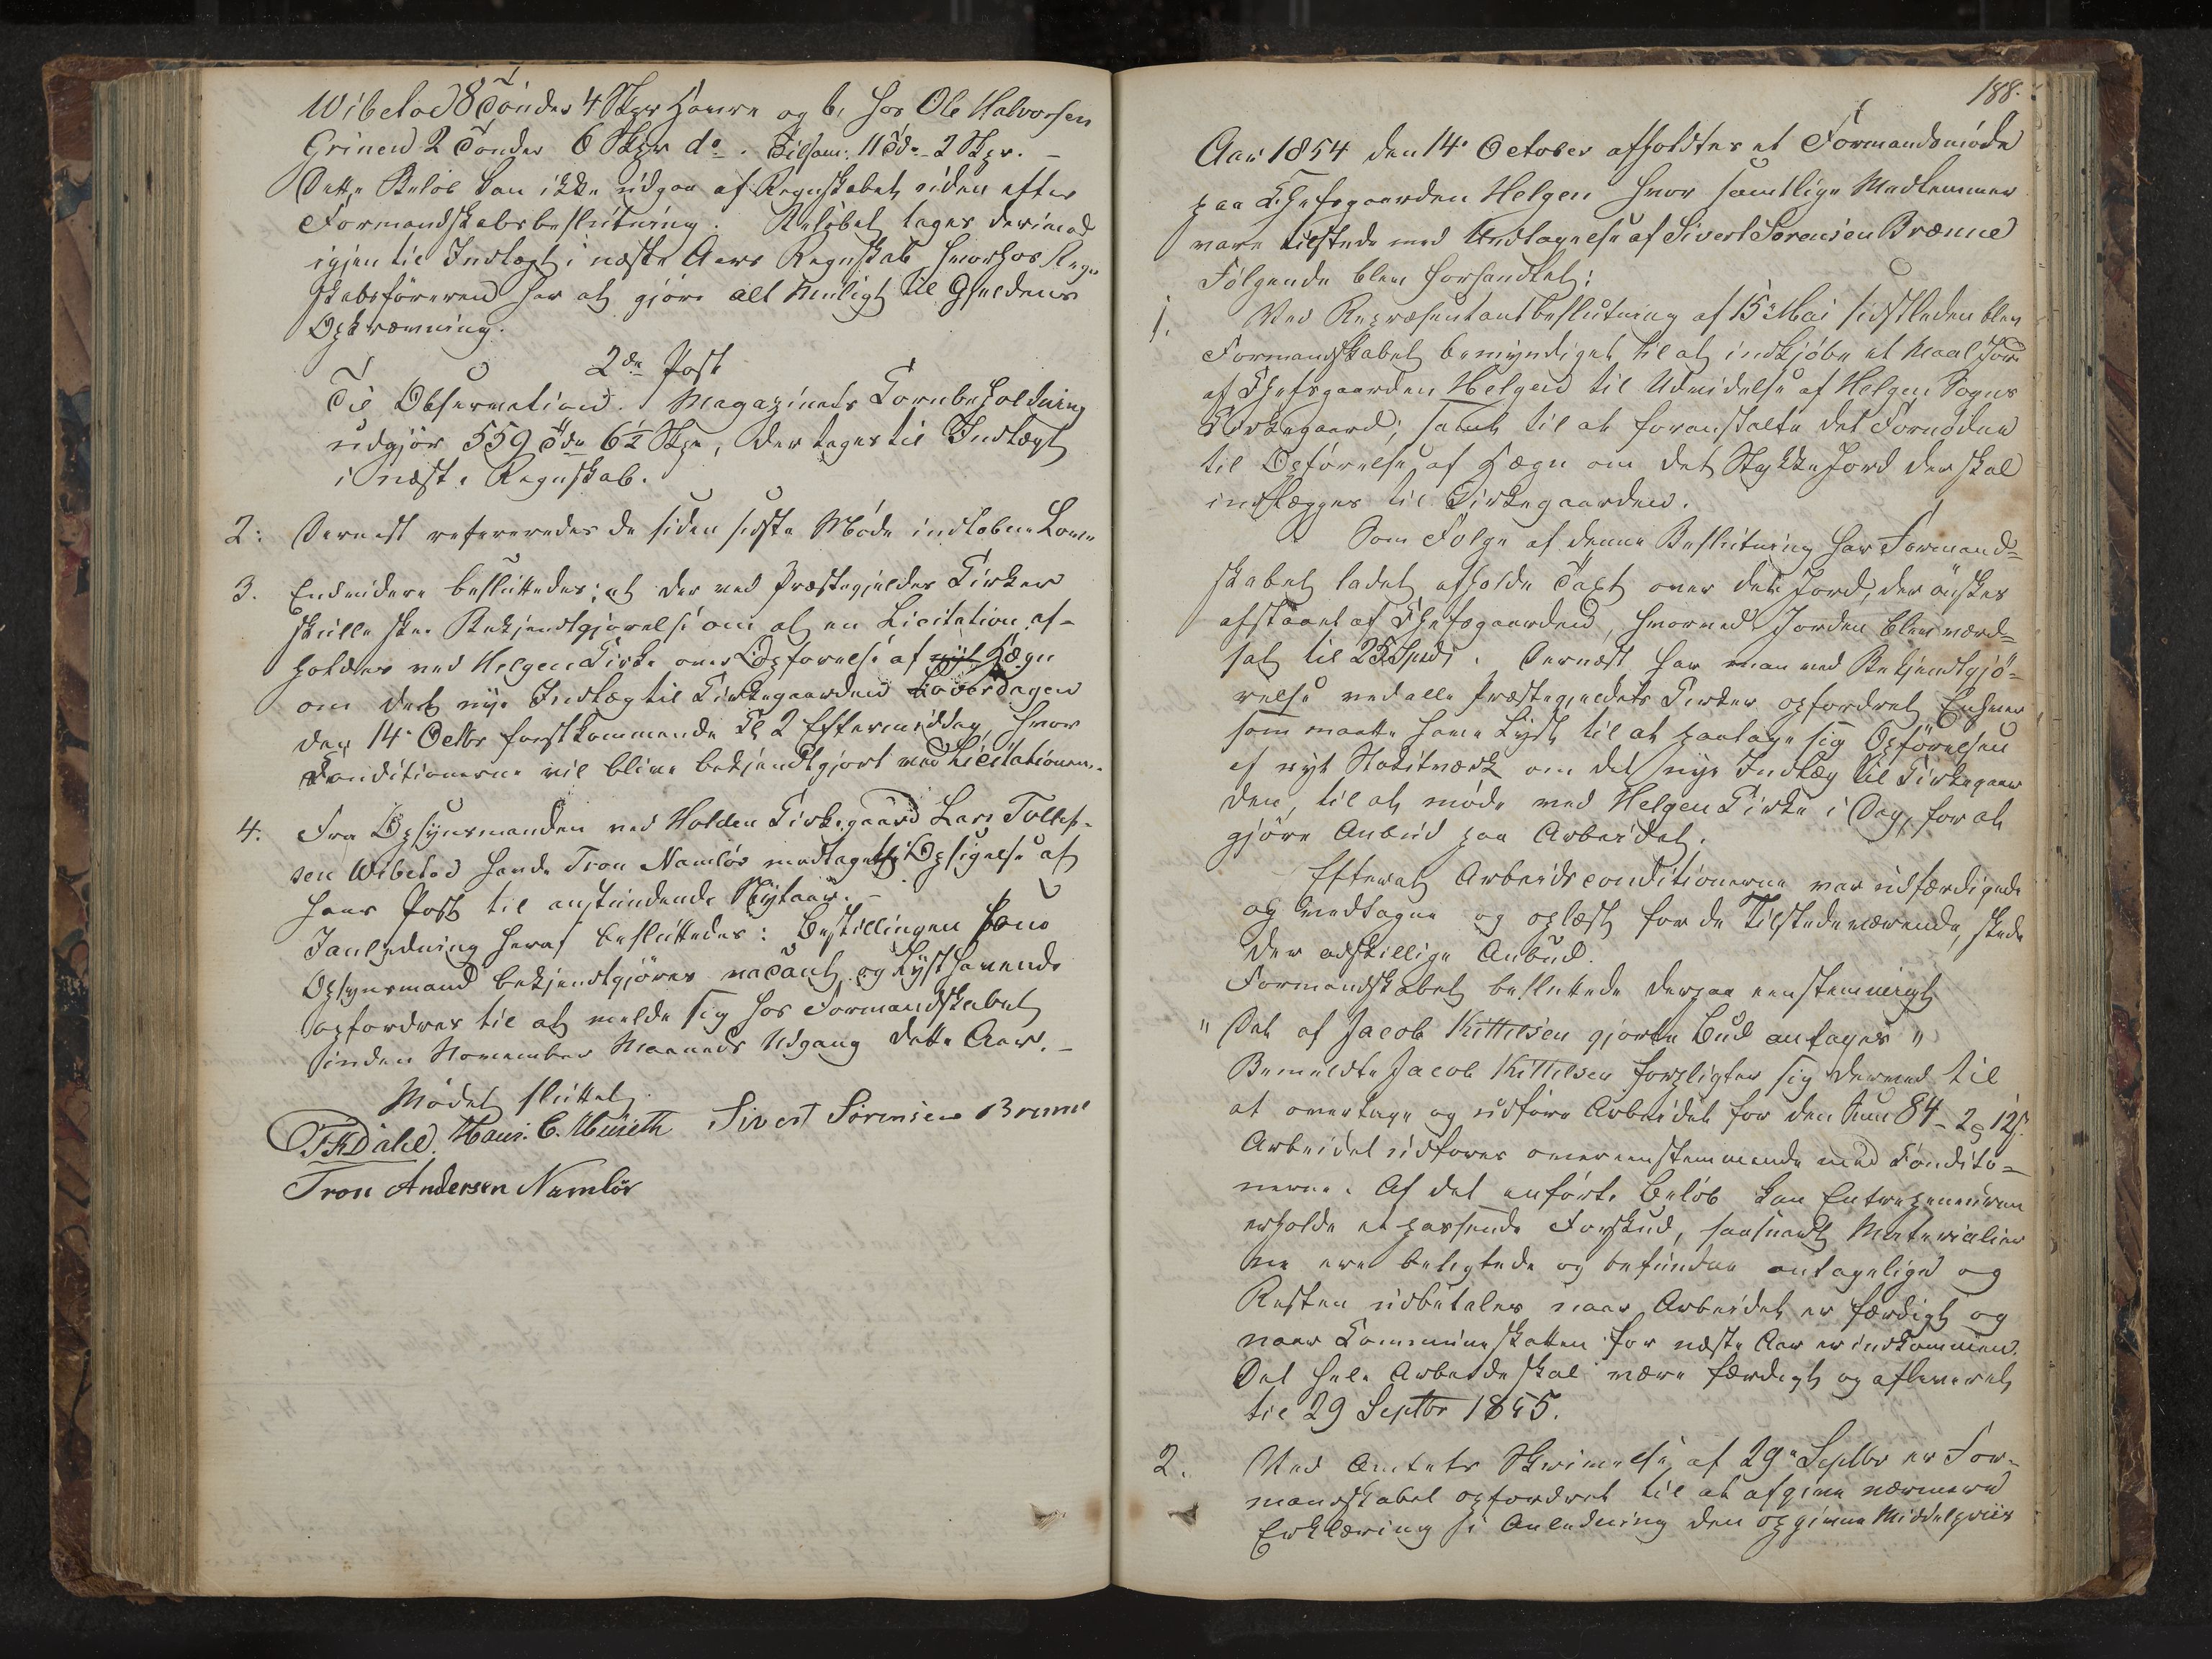 Wibetod 8 Tönder 4 Skpr Havre og b, hos Ole Halvorsen
Grinen 2 Tönder 6 Skpr do. Tilsam: 11 Tdr 2 Skpr. –
Dette Beløb kan ikke udgaa af Regnskabet uden efter
Formandskabsbeslutning. Beløbet tages derimod
igjen til Indtægt i næste Aars Regnskab hvorhos Regn
skabsföreren har at gjøre alt muligt til Gjeldens
Opkrævning.
2den Post
Til Observation. Magazinets Kornbeholdning
udgjør 559 Tdr 6½ Skpr, der tages til Indtægt
i næste Regnskab.
2: Dernest refereredes de siden sidste Møde indløbne Love
3. Endvidere besluttedes: at der ved Præstegjeldes Kirker
skulle skee Bekjendtgjørelse om at en Licitation af-
holdes ved Helgen Kirke over Opførelse af nyt Hegn
om det nye Indlæg til Kirkegaarden Löverdagen
den 14de Octbr førstkommende Kl 2 Eftermiddag hvor
Konditionerne vil blive bekjendtgjort ved Licitationen.
4. Fra Opsynsmanden ved Holden Kirkegaard Lars Tollef-
sen Wibetod havde Tron Namløs modtaget Opsigelse af
hans Post til anstundende Nytaar. –
I anledning heraf besluttedes: Bestillingen som
Opsynsmand bekjendtgjøres vacant og Lysthavende
opfordres til at melde sig hos Formandskabet
inden November Maaneds Udgang dette Aar. –
Mødet sluttet.
Hans C. Sivert Sörensen Brenne
Tron Andersen Namlös
188.
Aar 1854 den 14de October afholdtes et Formandsmöde
paa Chefsgaarden Helgen hvor samtlige Medlemmer
vare tilstede med Undtagelse af Sivert Sörensen Brænne
Følgende blev forhandlet:
1. Ved Repræsentantbeslutning af 15de Mai sidstleden blev
Formandskabet bemyndiget til at indkjøbe et Maal Jord
af Chefsgaarden Helgen til Udvidelse af Helgen Sogns
Kirkegaard; samt til at foranstalte det Fornødne
til Opførelse af Hegn om det Stykke Jord der skal
indlægges til Kirkegaarden.
Som Følge af denne Beslutning har Formand=
skabet ladet afholde Taxt over det Jord, der önskes
afstaaet af Chefsgaarden, hvorved Jorden blev værd=
sat til 25 Spd. Dernæst har man ved Bekjendtgjö=
relse ved alle Præstegjeldets Kirker opfordret Enhver
som maatte have Lyst til at paatage sig Opførelsen
af nyt Stakitværk om det nye Indlæg til Kirkegaar
den, til at møde ved Helgen Kirke i Dag, for at
gjöre Anbud paa Arbeidet.
Efterat Arbeidsconditionerne var udfærdigede
og vedtagne og oplæst for de Tilstedeværende, skede
der adskillige Anbud.
Formandskabet besluttede derpaa eenstemmigt
" Det af Jacob Kittilsen gjorte Bud antages "
Bemeldte Jacob Kittilsen forpligter sig dermed til
at overtage og udføre Arbeidet for den Sum 84 – 2 12 s.
Arbeidet udføres overeenstemmende med Kondito=
nerne. Af det anførte Beløb kan Entreprenøren
erholde et passende Forskud, saasnart Materialier
ne ere besigtede og befundne antagelige og
Resten udbetales naar Arbeidet er færdigt og
naar Kommuneskatten for næste Aar er indkommen.
Det hele Arbeide skal være færdigt og afleveret
til 29 Septbr 1855.
2. Ved Amtets Skrivelse af 29de Septbr er For-
mandskabet opfordret til at afgive nærmere
Erklæring i Anledning den opgivne Middelpriis